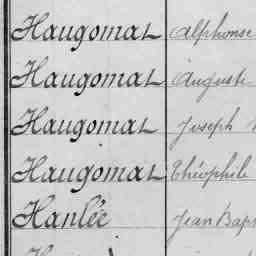 Haugomat Alphonse
Haugomat Auguste
Haugomat Joseph
Haugomat Théophile
Hanlée Jean Bap